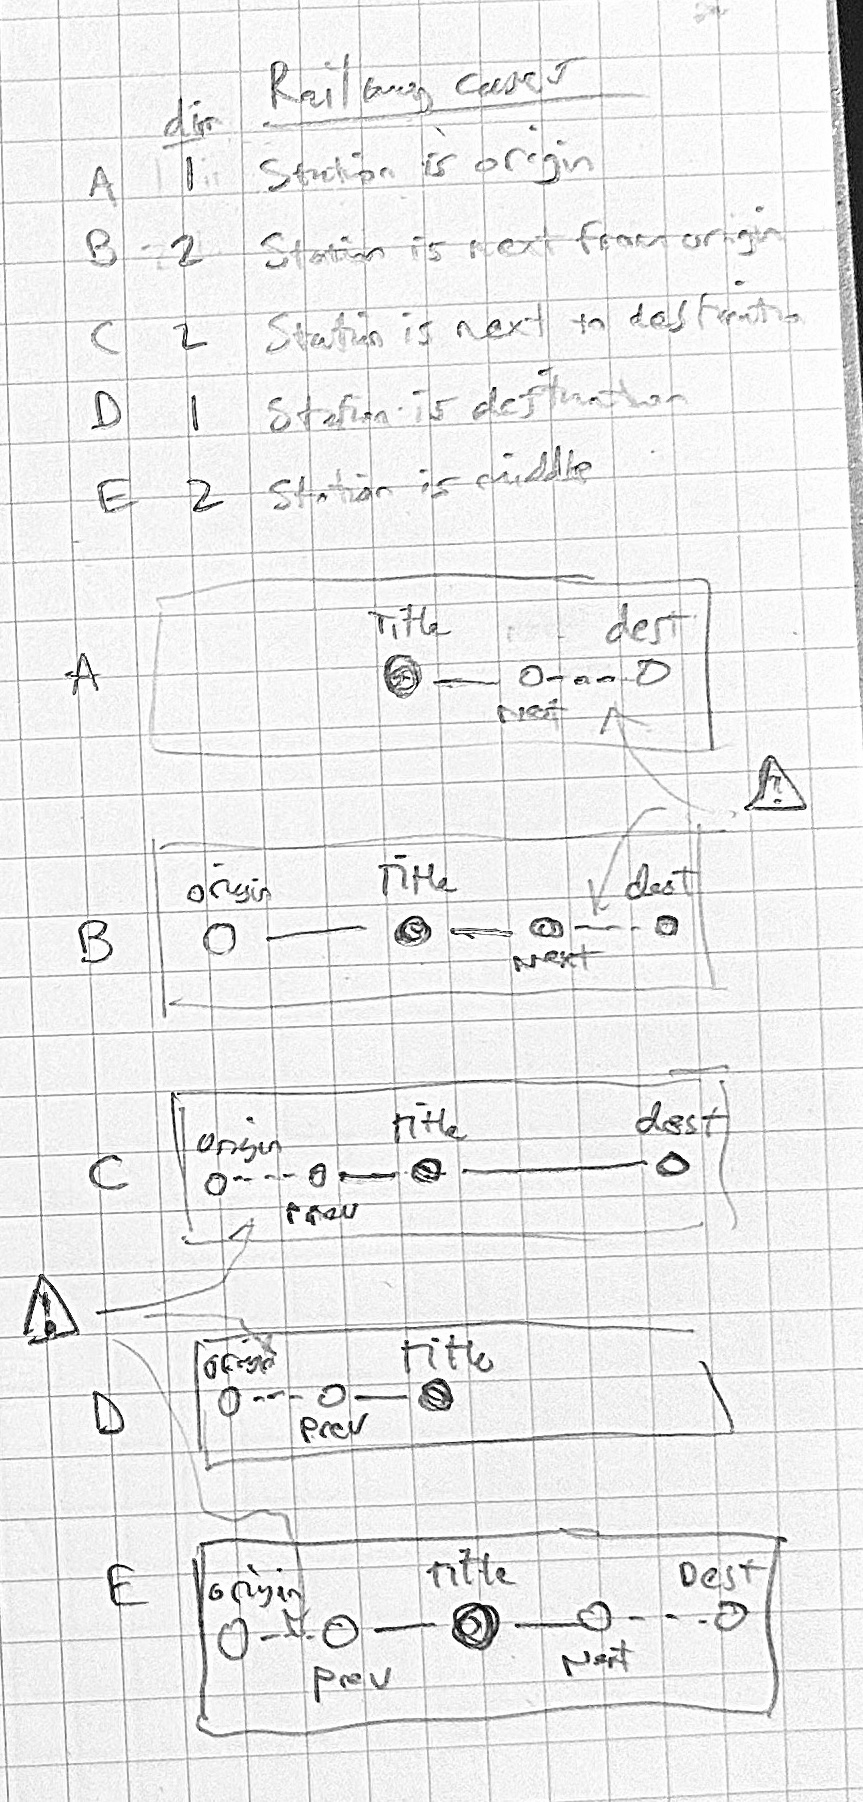 Railway cases
dir
A 1 Station is origin
B 2 Station is next from origin
C 2 Station is next to destination
D 1 Station is destination
E 2 Station is middle
Title dest
A
Next
!
origin Title dest
B
Next
origin Title dest
C
Prev
!
origin Title
D
Prev
E origin Title Dest
Prev Next